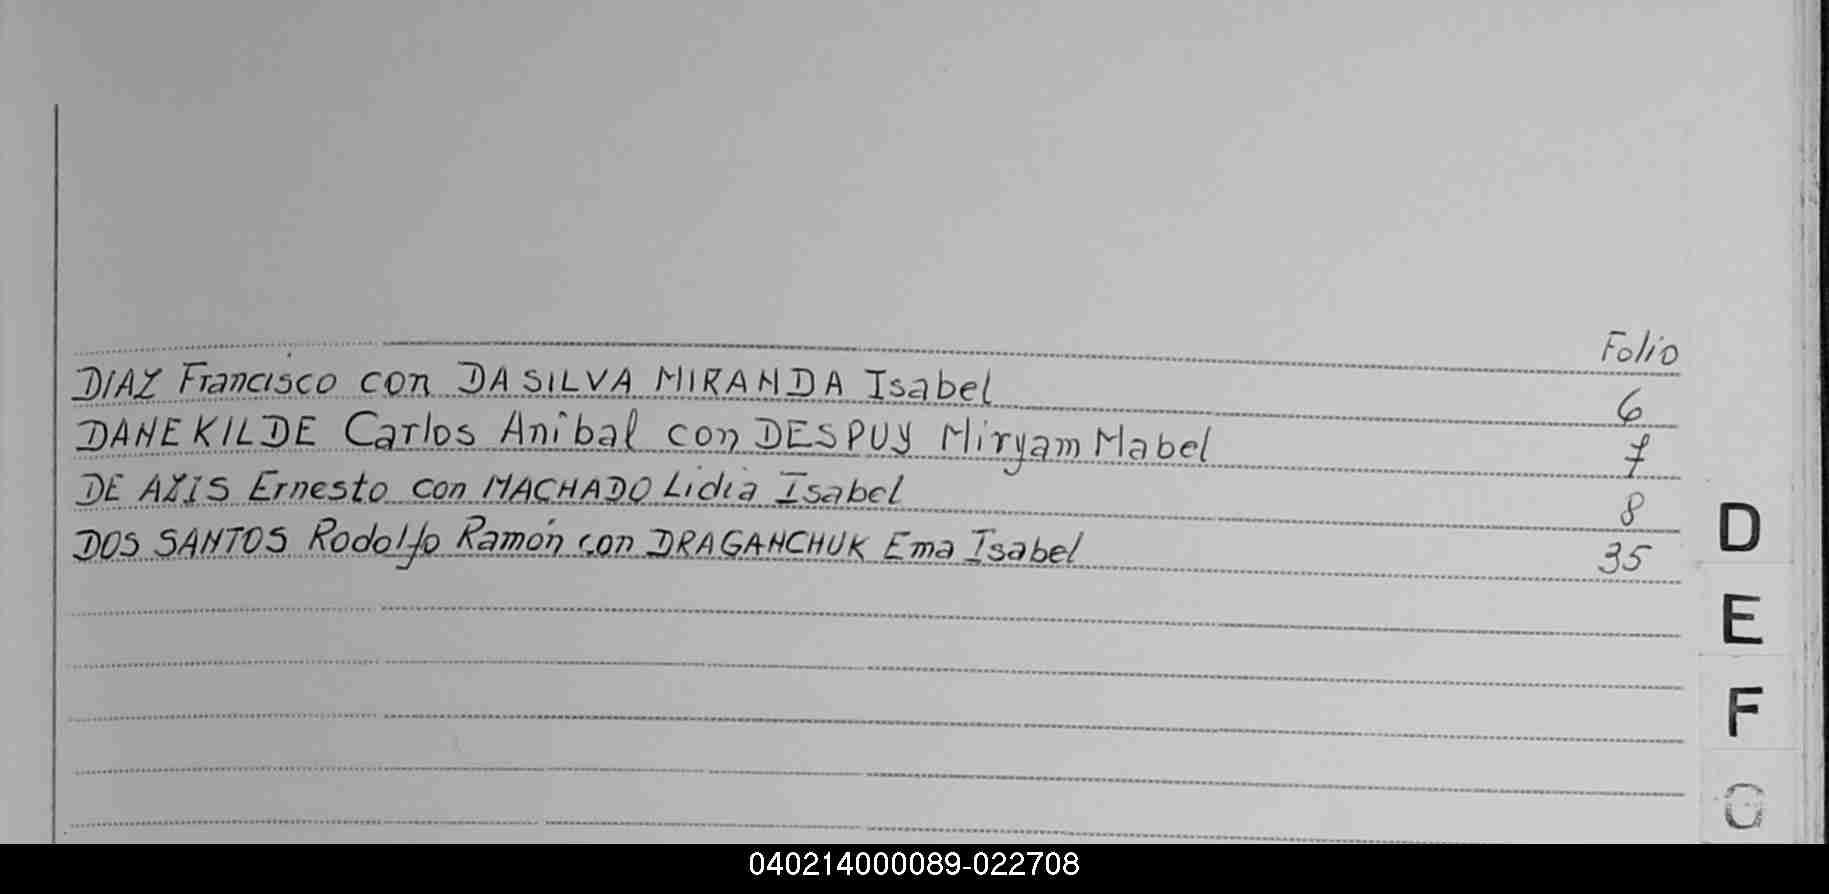 Folio
DIAZ Francisco con DASILVA MIRANDA Isabel 6
DANEKILDE Carlos Anibal con DESPUY Miryam Mabel 7
DE AXIS Ernesto con MACHADO Lidia Isabel 8
DOS SANTOS Rodolfo Ramón con DRAGANCHUK Ema Isabel 35
D
E
F
G
040214000089-022708